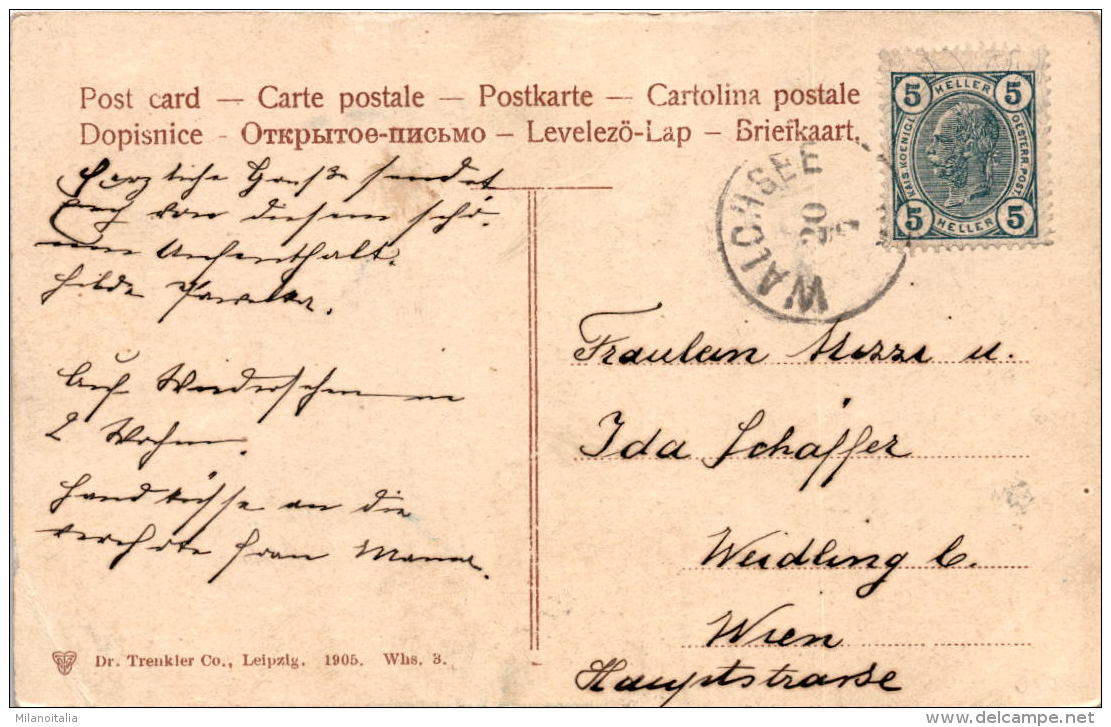 Post card – Carte postale – Postkarte – Cartolina postale
Dopisnice - Открытое-письмо – Levelező-Lap – Briefkaart.
Herzliche Grüße sendet
von diesem schö-
nen Aufenthalt.
Hilde
Auf Wiedersehen in
2 Wochen.
Handküsse an die
verehrte Frau Mama.
Dr. Trenkler Co., Leipzig. 1905. Whs. 3.
5 HELLER 5
KAIS. KOENIGL. OESTERR. POST.
5 HELLER 5
WALCHSEE
Fräulein Mizzi u.
Ida Schäffer
Weidling b.
Wien
Hauptstrasse
Milanoitalia
delcampe.net